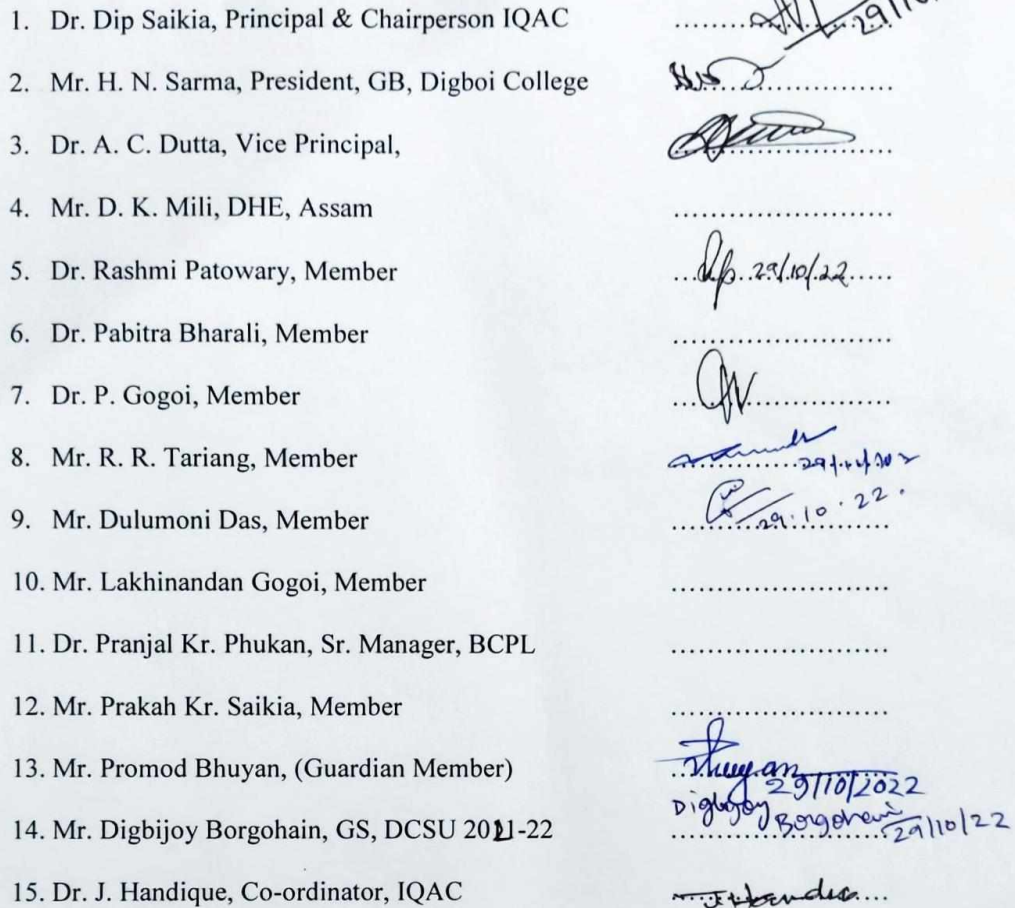 1. Dr. Dip Saikia, Principal & Chairperson IQAC ....................... 29/10
2. Mr. H. N. Sarma, President, GB, Digboi College .......................
3. Dr. A. C. Dutta, Vice Principal, .......................
4. Mr. D. K. Mili, DHE, Assam .......................
5. Dr. Rashmi Patowary, Member ....................... 29/10/22
6. Dr. Pabitra Bharali, Member .......................
7. Dr. P. Gogoi, Member .......................
8. Mr. R. R. Tariang, Member .......................
9. Mr. Dulumoni Das, Member ....................... 29.10.22.
10. Mr. Lakhinandan Gogoi, Member .......................
11. Dr. Pranjal Kr. Phukan, Sr. Manager, BCPL .......................
12. Mr. Prakah Kr. Saikia, Member .......................
13. Mr. Promod Bhuyan, (Guardian Member) Bhuyan 29/10/2022
14. Mr. Digbijoy Borgohain, GS, DCSU 2021-22 Digbijoy Borgohain 29/10/22
15. Dr. J. Handique, Co-ordinator, IQAC .......................